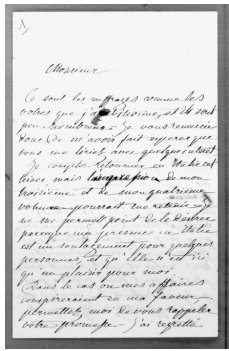 1)
Monsieur
Ce sont les suffrages comme les
votres que j'ambitionne, et ils sont
peu nombreux. Je vous remercie
donc de m'avoir fait esperer que
vous me lirés avec quelque interet
Je compte retourner en Italie cet
hiver mais l'impression de mon
troisième et de mon quatrième
volume pourrait me retenir
ne me permet point de le desirer
parceque ma presence en Italie
est un soulagement pour quelques
personnes, et qu'elle n'est ici
qu'un plaisir pour moi.
Dans le cas ou mes affaires
conspireraient en ma faveur
permettes moi de vous rappeler
votre promesse. J'ai regretté